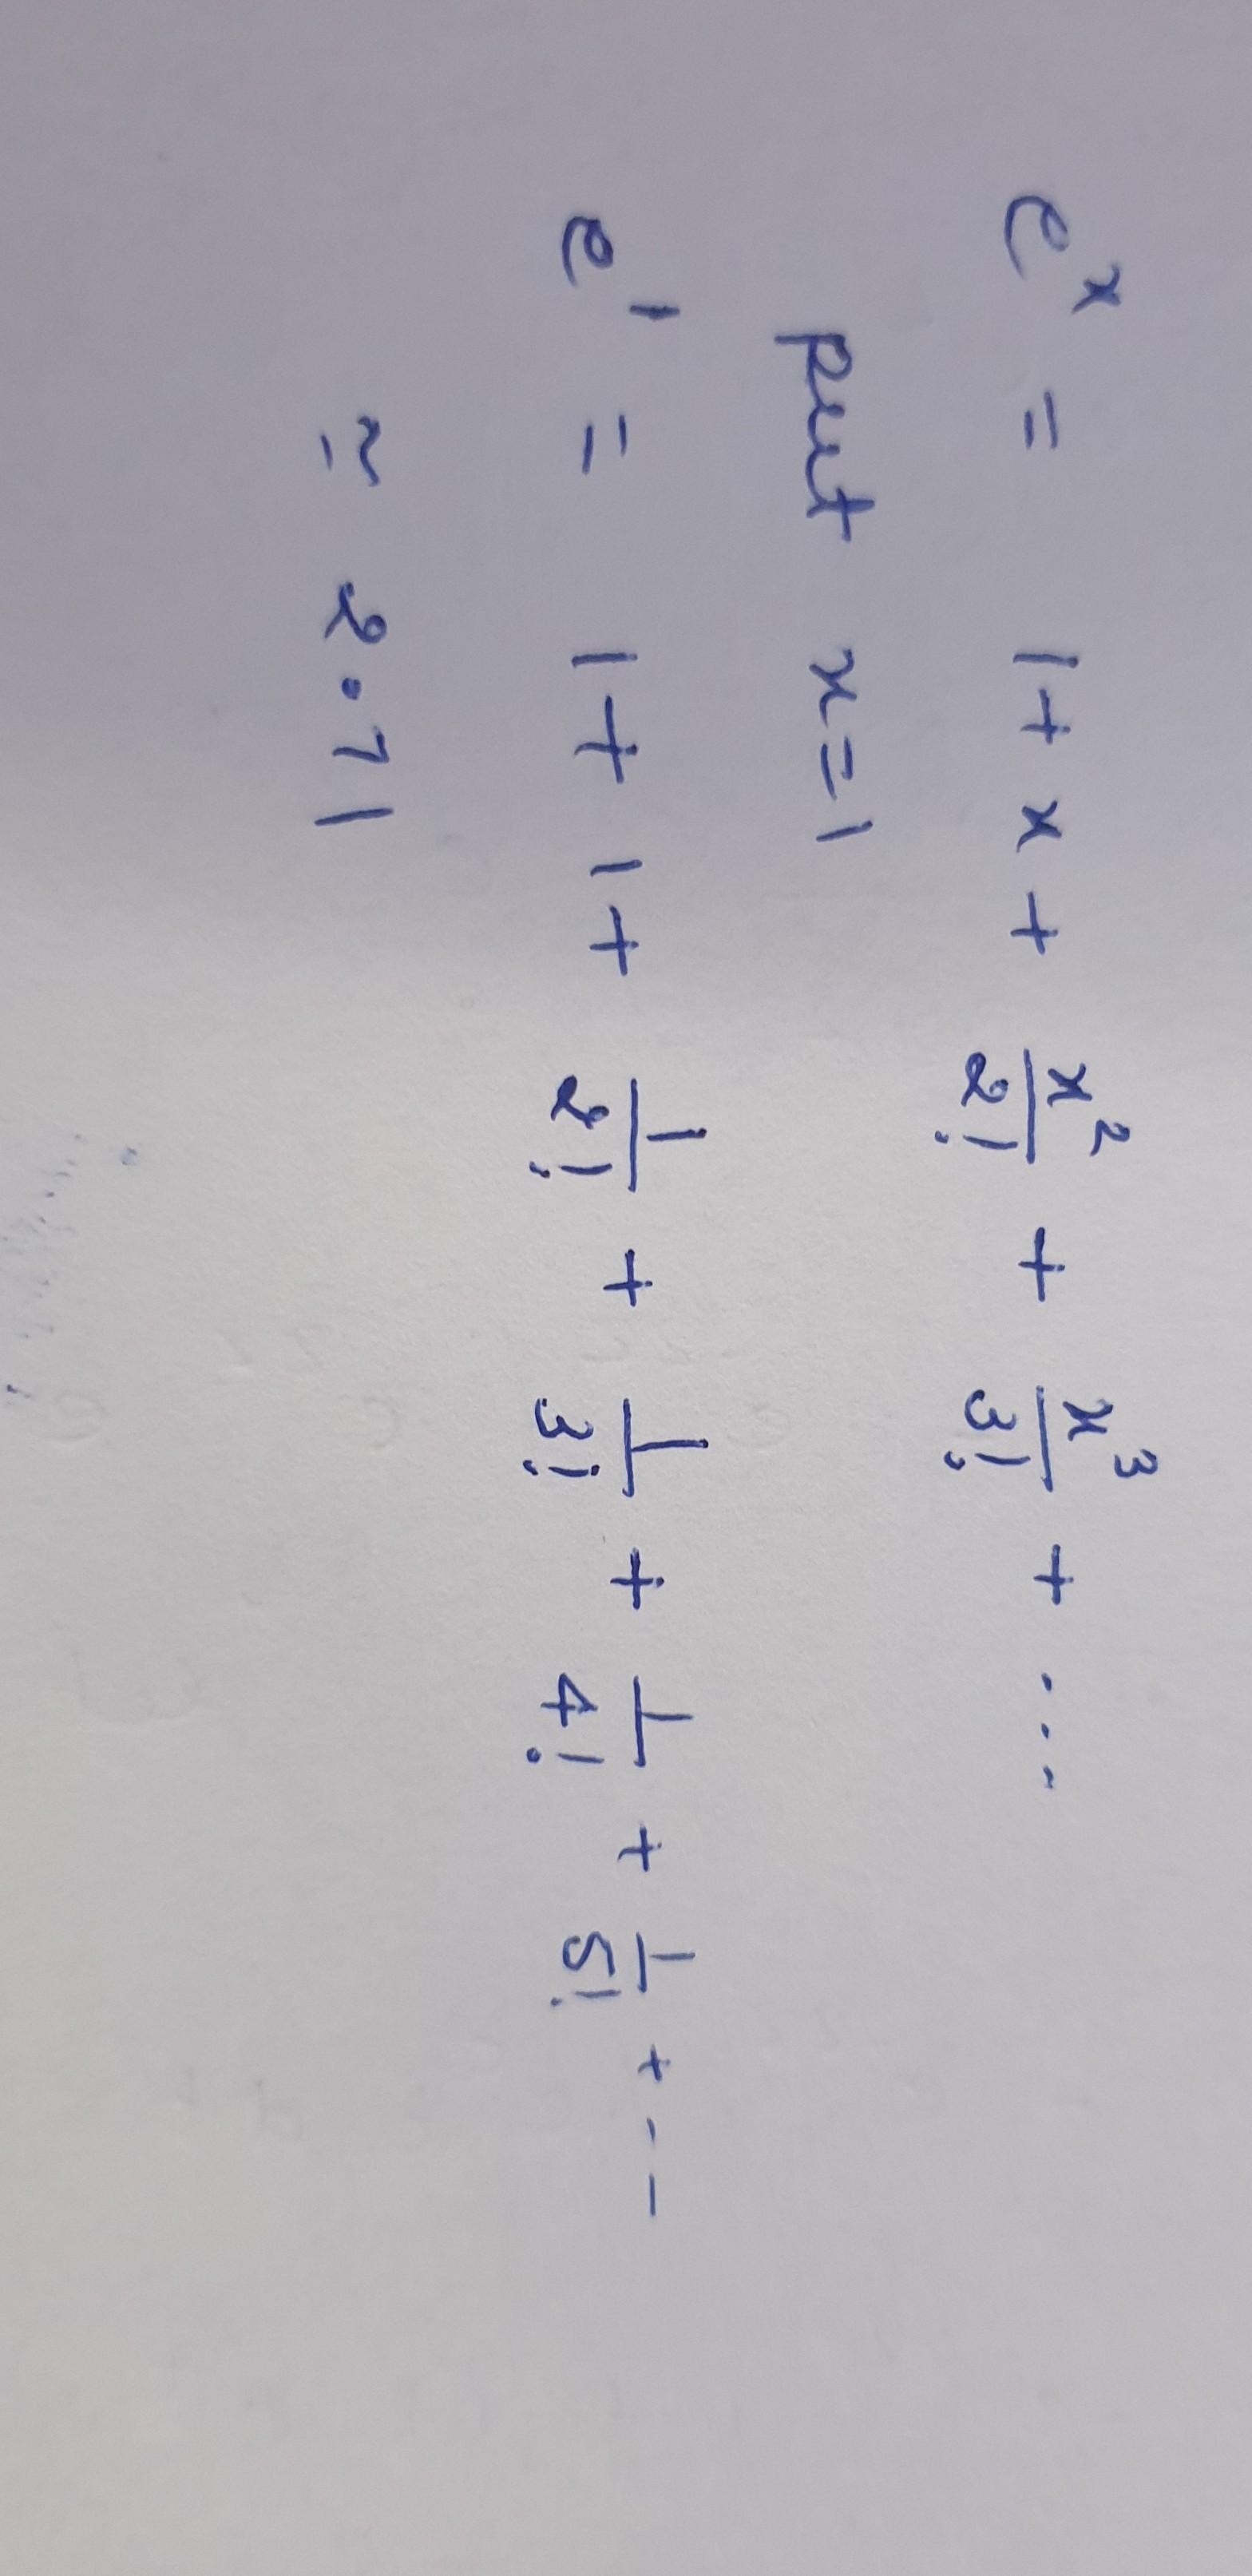 e^x = 1 + x + x^2/2! + x^3/3! + ...
put x=1
e^1 = 1 + 1 + 1/2! + 1/3! + 1/4! + 1/5! + - -
≃ 2.71